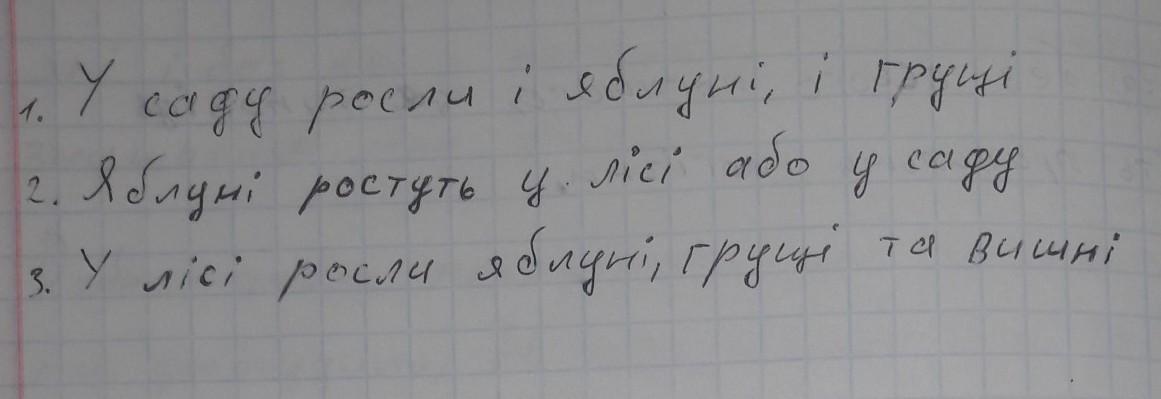 1. У саду росли і яблуні, і груші
2. Яблуні ростуть у лісі або у саду
3. У лісі росли яблуні, груші та вишні